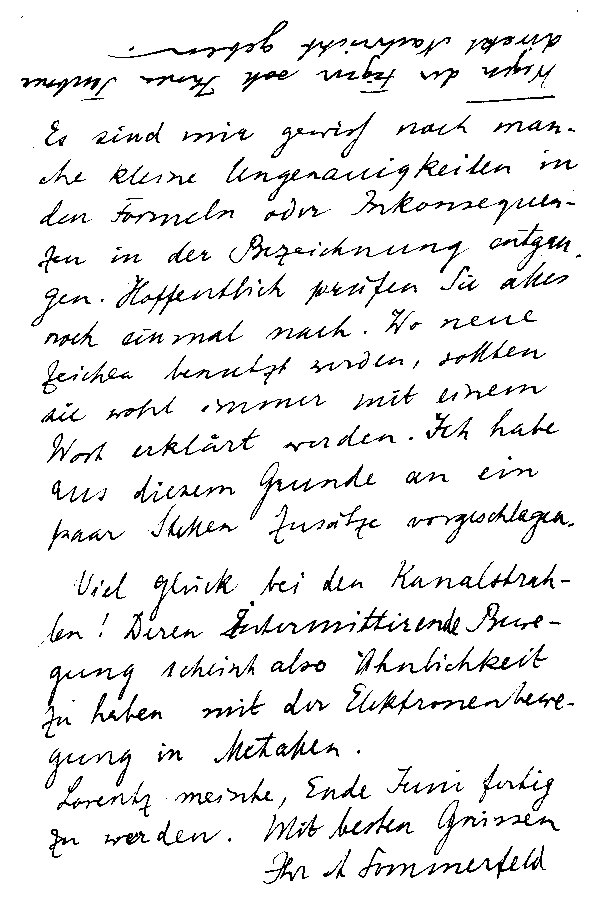 Wegen der Fragen soll Ihnen Teubner
direkt Nachricht geben.
Es sind mir gewiss noch man-
che kleine Ungenauigkeiten in
den Formeln oder Inkonsequen-
zen in der Bezeichnung entgan-
gen. Hoffentlich prüfen Sie alles
noch einmal nach. Wo neue
Zeichen benutzt werden, sollten
sie wohl immer mit einem
Wort erklärt werden. Ich habe
aus diesem Grunde an ein
paar Stellen Zusätze vorgeschlagen.
Viel Glück bei den Kanalstrah-
len! Deren Intermittirende Bewe-
gung scheint also Ähnlichkeit
zu haben mit der Elektronenbewe-
gung in Metallen.
Lorentz meinte, Ende Juni fertig
zu werden. Mit besten Grüssen
Ihr A Sommerfeld